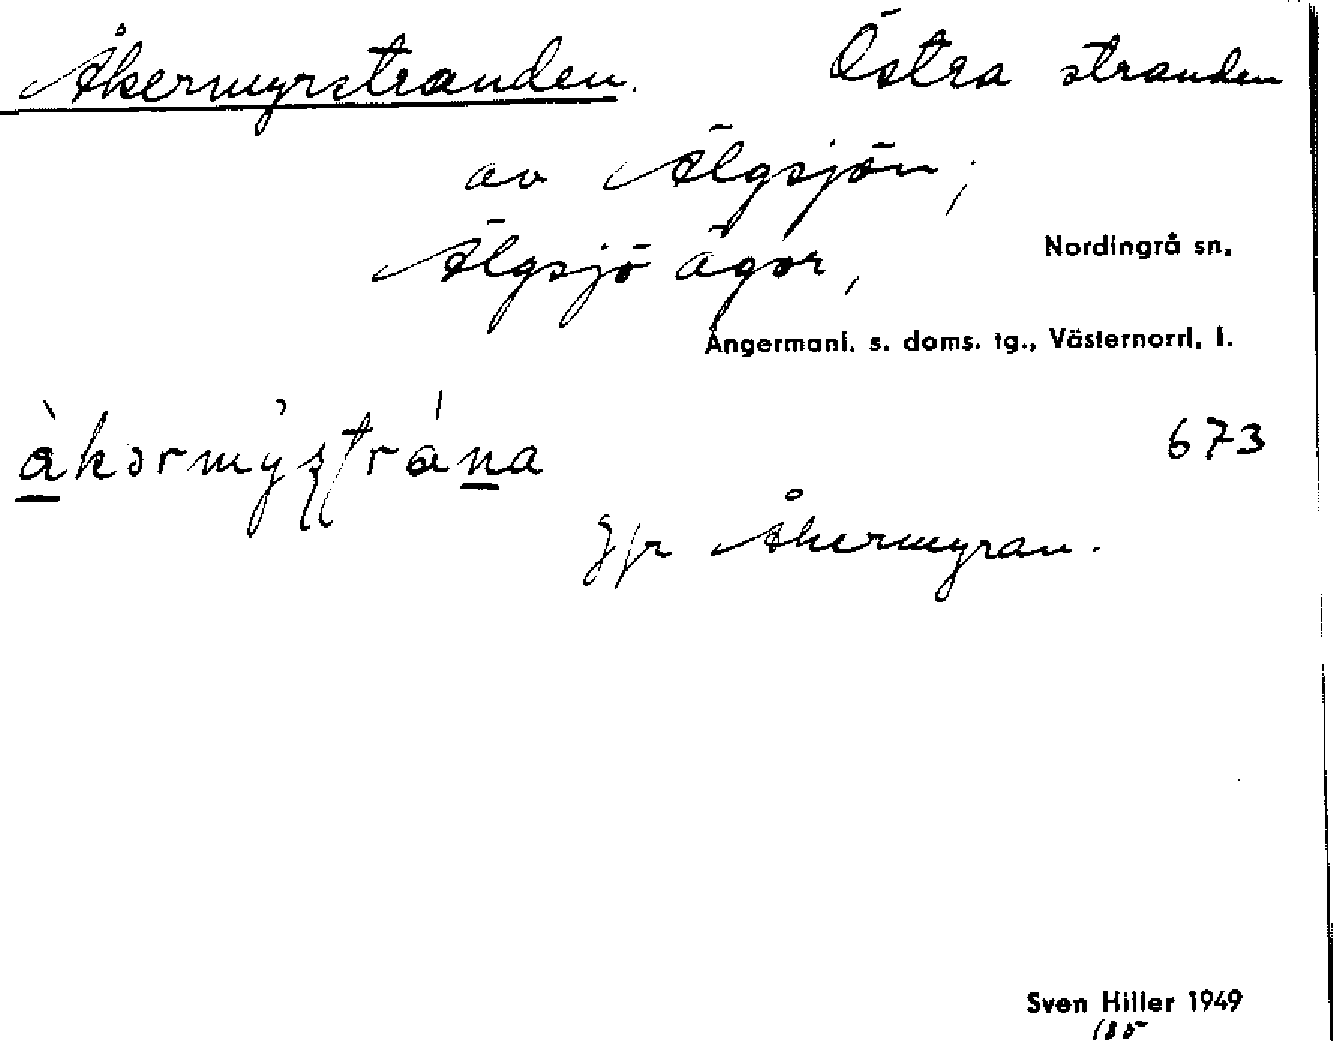 Åkermyrstranden. Östra stranden
av Älgsjön;
Älgsjö ägor,
Nordingrå sn.
Ångermanl. s. doms. tg., Västernorrl. l.
673
Jfr Åkermyran.
Sven Hiller 1949
185